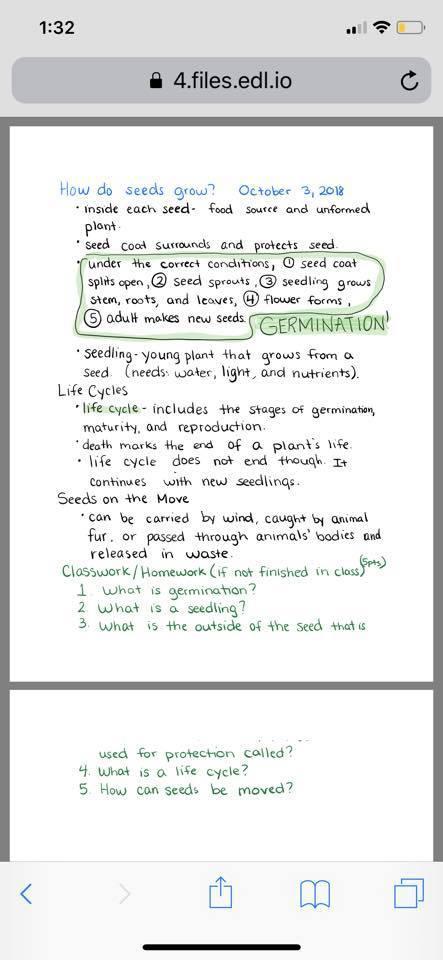 1:32
4.files.edl.io
How do seeds grow? October 3, 2018
• inside each seed- food source and unformed
plant.
• seed coat surrounds and protects seed.
• under the correct conditions, ① seed coat
splits open, ② seed sprouts, ③ seedling grows
stem, roots, and leaves, ④ flower forms,
⑤ adult makes new seeds.
GERMINATION!
• seedling- young plant that grows from a
seed. (needs: water, light, and nutrients).
Life Cycles
• life cycle - includes the stages of germination,
maturity, and reproduction.
• death marks the end of a plant's life.
• life cycle does not end though. It
continues with new seedlings.
Seeds on the Move
• can be carried by wind, caught by animal
fur, or passed through animals' bodies and
released in waste.
Classwork/Homework (if not finished in class) (5pts)
1. What is germination?
2. What is a seedling?
3. What is the outside of the seed that is
used for protection called?
4. What is a life cycle?
5. How can seeds be moved?